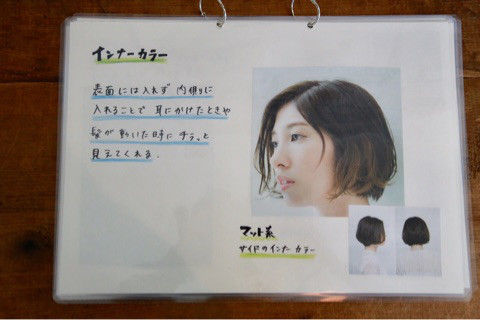 インナーカラー
表面には入れず 内側に
入れることで 耳にかけたときや
髪が動いた時に チラッと
見えてくれる.
マット系
サイドのインナーカラー